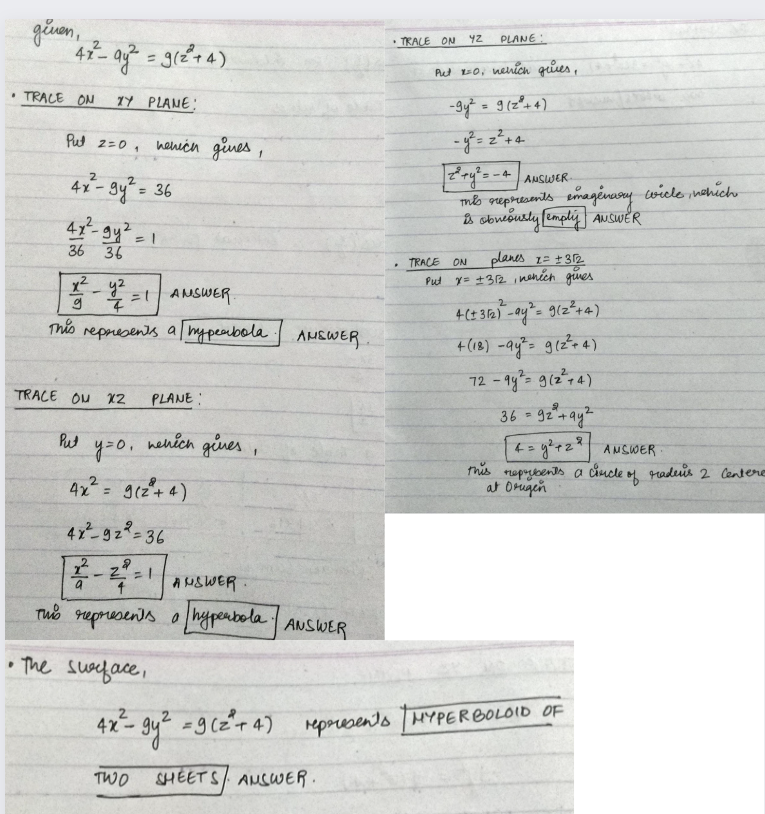 given,
4x² - 9y² = 9(z² + 4)
• TRACE ON XY PLANE:
Put z=0, which gives,
4x² - 9y² = 36
4x²/36 - 9y²/36 = 1
x²/9 - y²/4 = 1 ANSWER.
This represents a hyperbola. ANSWER
TRACE ON XZ PLANE:
Put y=0, which gives,
4x² = 9(z² + 4)
4x² - 9z² = 36
x²/9 - z²/4 = 1 ANSWER.
This represents a hyperbola. ANSWER
• TRACE ON YZ PLANE:
Put x=0, which gives,
-9y² = 9(z² + 4)
-y² = z² + 4
z² + y² = -4 ANSWER.
This represents imaginary circle, which
is obviously empty ANSWER
• TRACE ON planes x = ±3√2
Put x = ±3√2, which gives
4(±3√2)² - 9y² = 9(z² + 4)
4(18) - 9y² = 9(z² + 4)
72 - 9y² = 9(z² + 4)
36 = 9z² + 9y²
4 = y² + z² ANSWER.
This represents a circle of radius 2 centere
at Origin
• The surface,
4x² - 9y² = 9(z² + 4) represents HYPERBOLOID OF
TWO SHEETS. ANSWER.